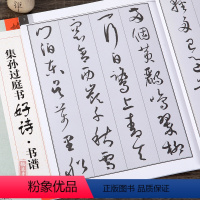 集孙过庭书
好诗·书谱
两个黄鹂鸣翠柳
一行白鹭上青天
窗含西岭千秋雪
门泊东吴万里船
粉象优品